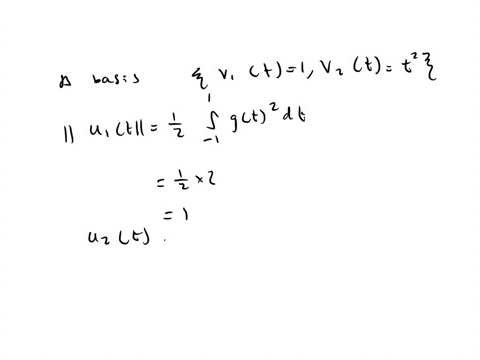 A basis { V₁ (t) = 1, V₂ (t) = t² }
|| u₁(t|| = 1/2 ∫₋₁¹ g(t)² dt
= 1/2 × 2
= 1
u₂ (t) .